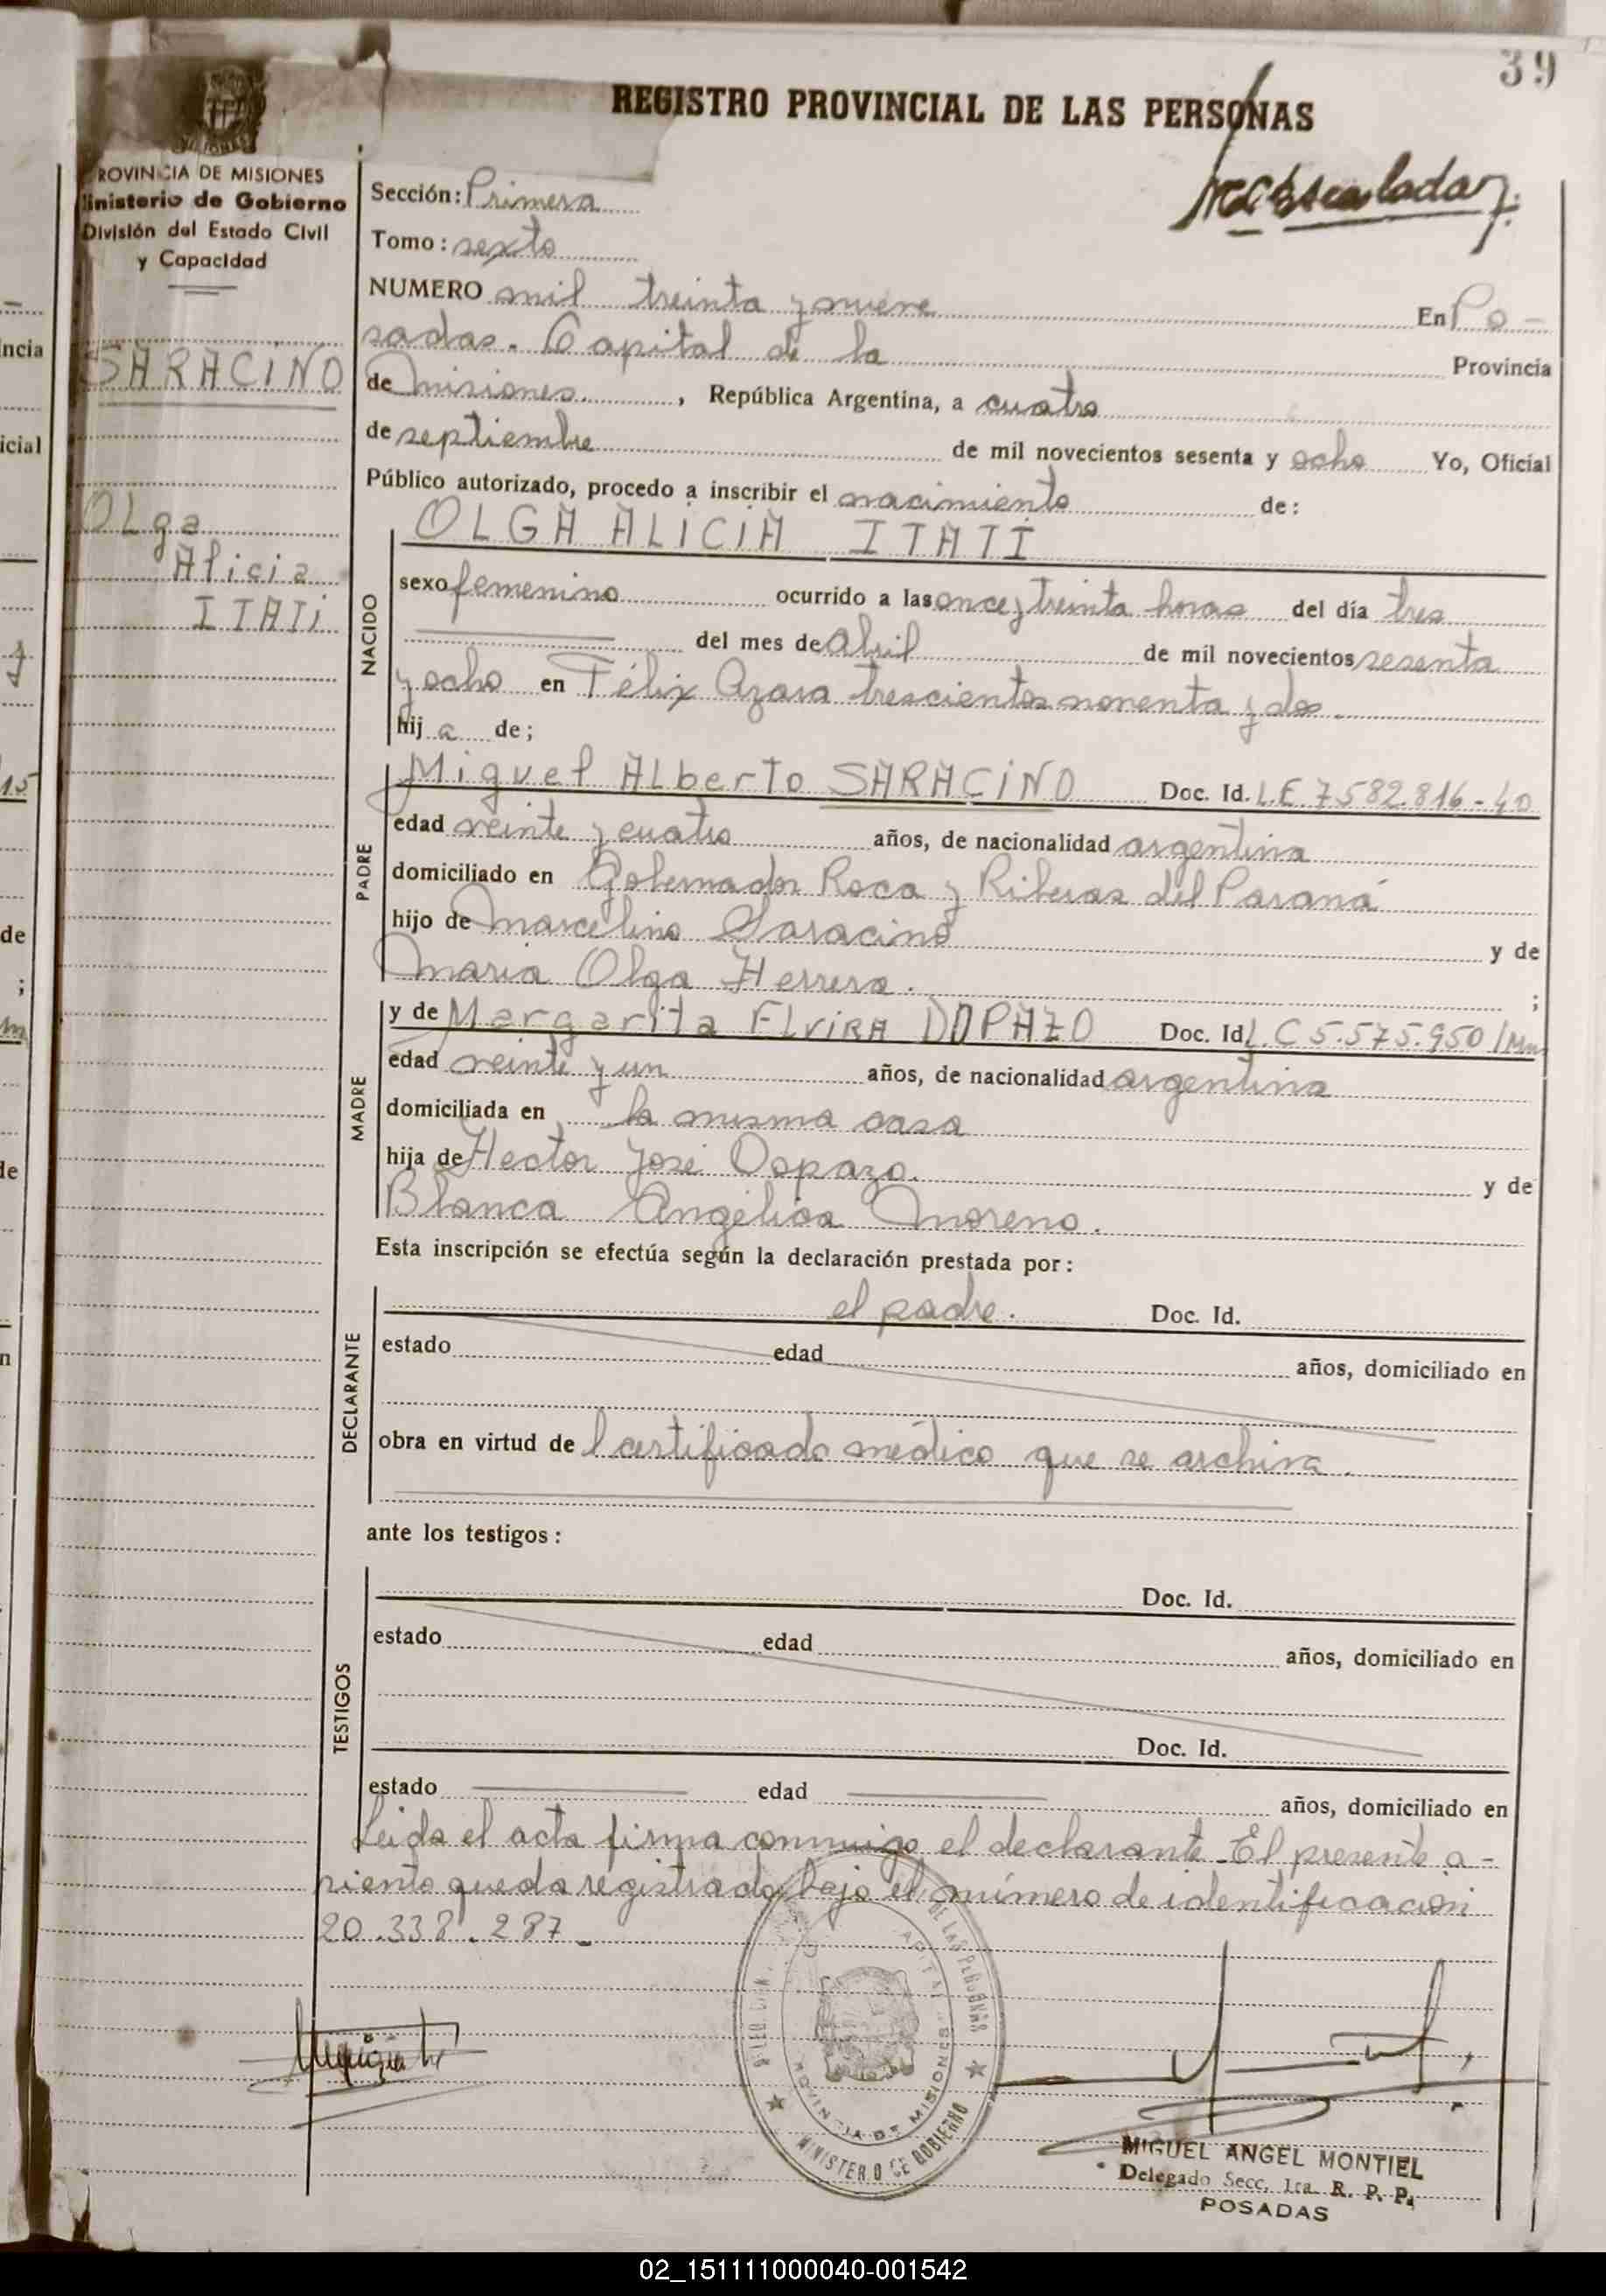 39
REGISTRO PROVINCIAL DE LAS PERSONAS
ROVINCIA DE MISIONES
Ministerio de Gobierno
División del Estado Civil
y Capacidad
SARACINO
OLga
Alicia
ITATI
Sección: Primera
Tomo: sexto
NUMERO mil treinta y nueve En Po-
sadas. Capital de la Provincia
de Misiones. , República Argentina, a cuatro
de septiembre de mil novecientos sesenta y ocho Yo, Oficial
Público autorizado, procedo a inscribir el nacimiento de:
OLGA ALICIA ITATI
NACIDO
sexo femenino ocurrido a las once y treinta horas del día tres
del mes de Abril de mil novecientos sesenta
y ocho en Félix Azara trescientos noventa y dos.
hij a de;
PADRE
Miguel ALberto SARACINO Doc. Id. L.E 7582.816-40
edad veinte y cuatro años, de nacionalidad argentina
domiciliado en Gobernador Roca y Riberas del Paraná
hijo de Marcelino Saracino y de
Maria Olga Herrera. ;
MADRE
y de Margarita ELviRA DOPAZO Doc. Id L.C 5.575.950/Mns
edad veinte y un años, de nacionalidad argentina
domiciliada en la misma casa
hija de Hector José Dopazo. y de
Blanca Angélica Moreno.
Esta inscripción se efectúa según la declaración prestada por:
DECLARANTE
el padre. Doc. Id.
estado edad años, domiciliado en
obra en virtud de l certificado médico que se archiva.
ante los testigos:
TESTIGOS
Doc. Id.
estado edad años, domiciliado en
Doc. Id.
estado edad años, domiciliado en
Leida el acta firma conmigo el declarante. El presente a-
siento queda registrado bajo el número de identificación
20.338.287.-
DE LAS PERSONAS
PROVINCIA DE MISIONES
MINISTERIO DE GOBIERNO
MIGUEL ANGEL MONTIEL
Delegado Secc. 1ra. R. P. P.
POSADAS
02_151111000040-001542